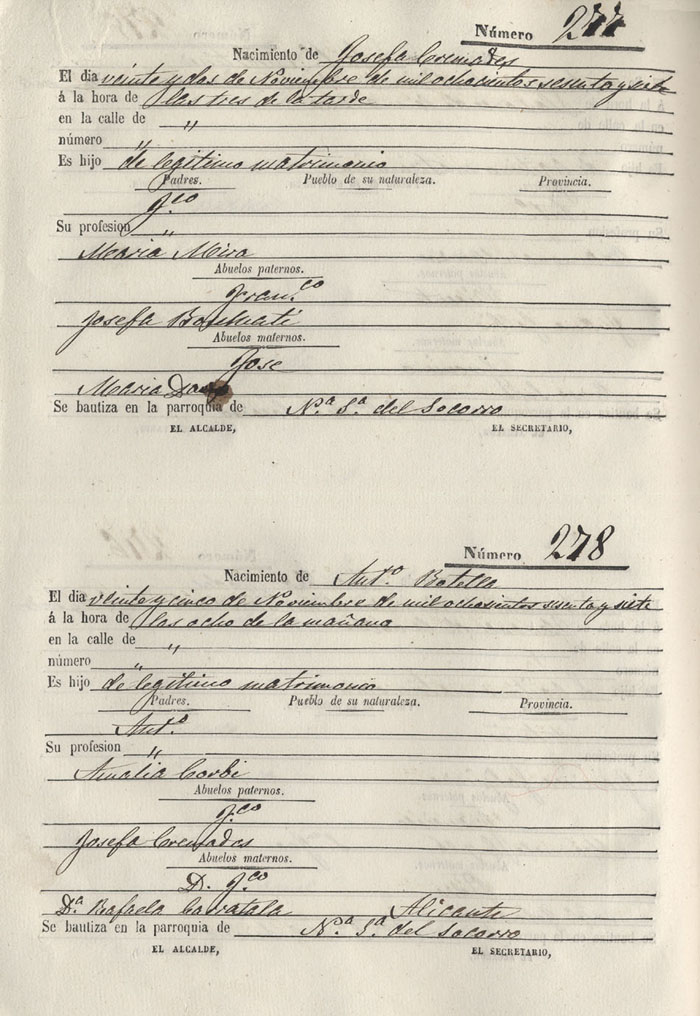 Número 277
Nacimiento de Josefa Cremades
El dia veinte y dos de Noviembre de mil ochosientos sesenta y siete
á la hora de las tres de la tarde
en la calle de "
número "
Es hijo de legitimo matrimonio
Padres. Pueblo de su naturaleza. Provincia.
Fco
Su profesion "
Maria Mira
Abuelos paternos.
Fran.co
Josefa
Abuelos maternos.
Jose
Maria
Se bautiza en la parroquia de N.a S.a del Socorro
EL ALCALDE, EL SECRETARIO,
Número 278
Nacimiento de Ant.o Botella
El dia veinte y cinco de Noviembre de mil ochosientos sesenta y siete
á la hora de las ocho de la mañana
en la calle de "
número "
Es hijo de legitimo matrimonio
Padres. Pueblo de su naturaleza. Provincia.
Ant.o
Su profesion "
Amalia Corbi
Abuelos paternos.
F.co
Josefa Cremades
Abuelos maternos.
D. F.co
D.a Rafaela Carratala Alicante
Se bautiza en la parroquia de N.a S.a del Socorro
EL ALCALDE, EL SECRETARIO,